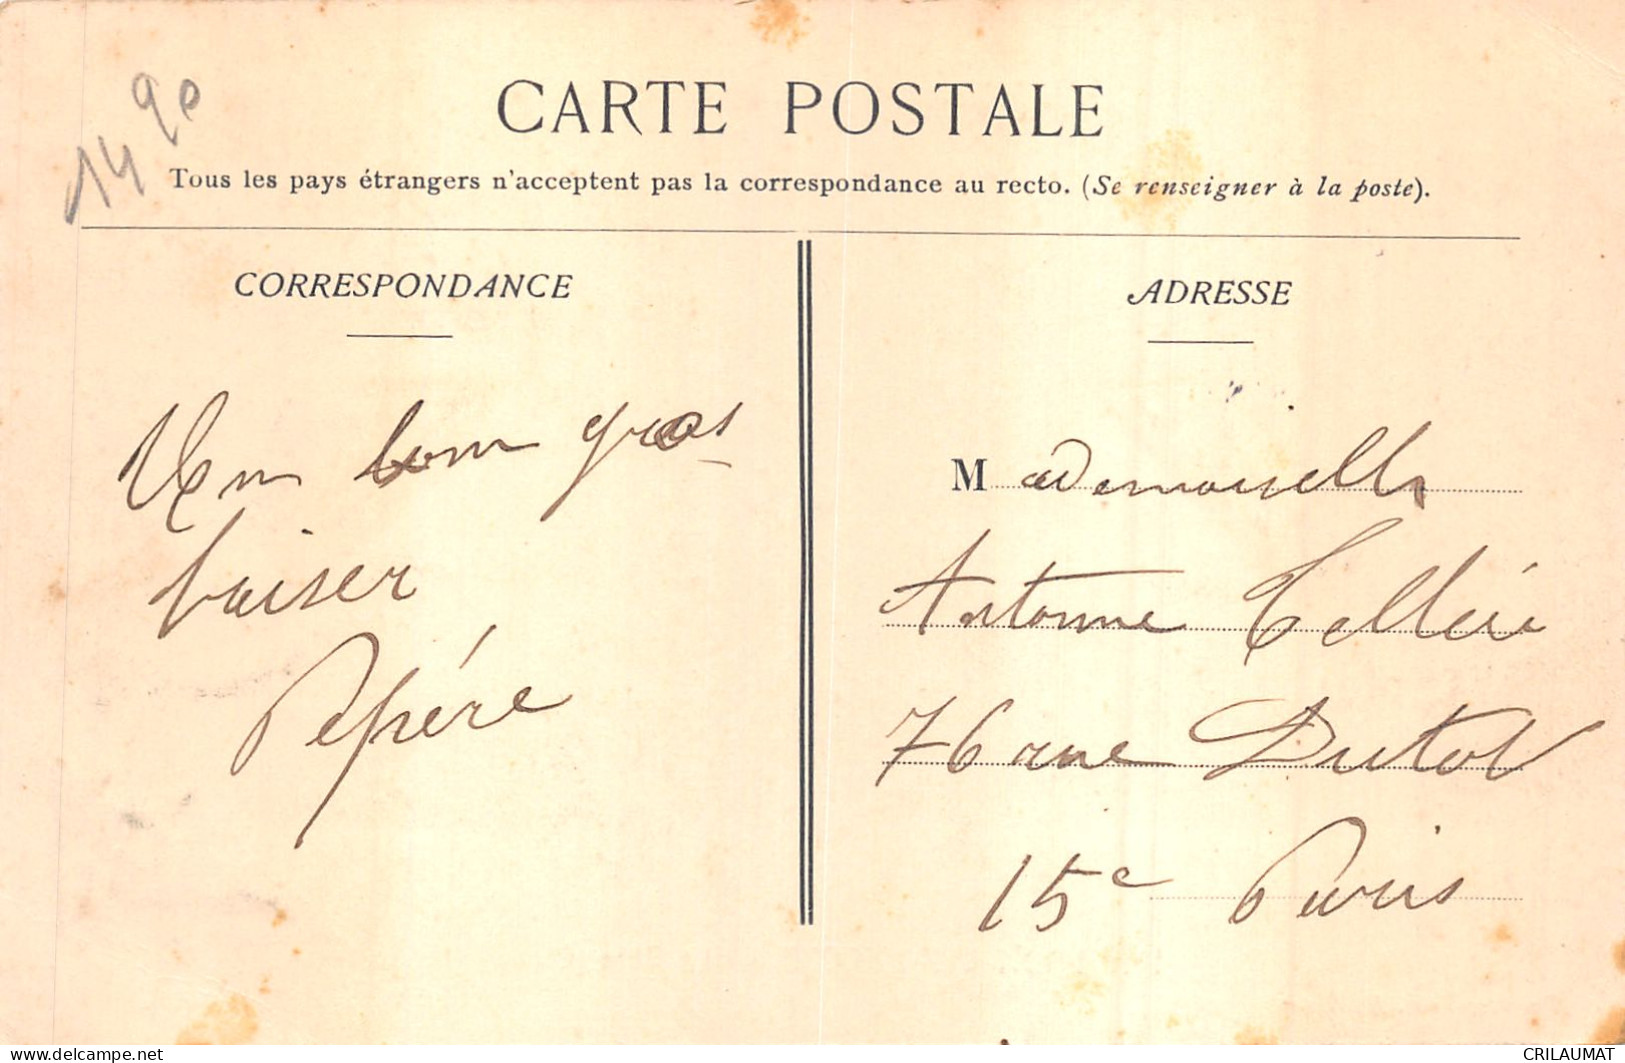 14 90
CARTE POSTALE
Tous les pays étrangers n'acceptent pas la correspondance au recto. (Se renseigner à la poste).
CORRESPONDANCE
Un bon gros
baiser
Pepère
ADRESSE
Mademoiselle
Antoinne
76 rue Dutot
15e Paris
www.delcampe.net
CRILAUMAT